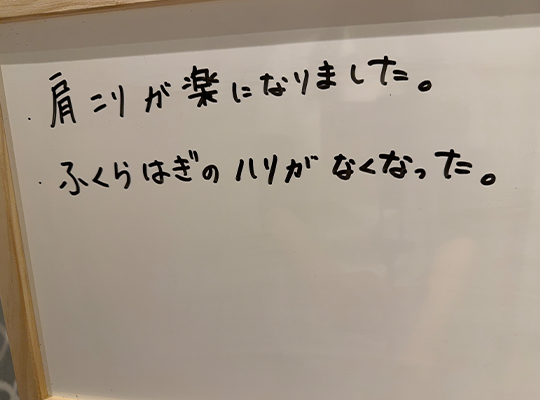 ・肩こりが楽になりました。
・ふくらはぎのハリがなくなった。